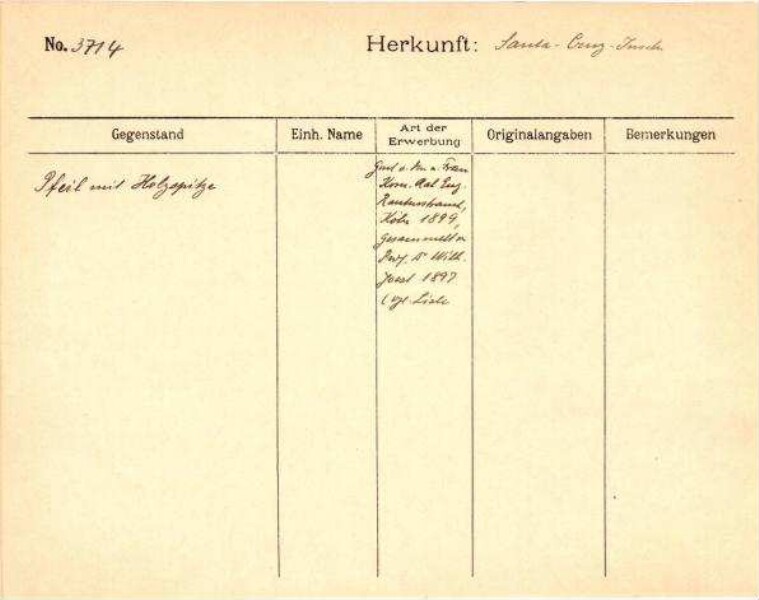 No. 3714 Herkunft: Santa-Cruz-Inseln
Gegenstand Einh. Name Art der Erwerbung Originalangaben Bemerkungen
Pfeil mit Holzspitze
Frau
Kom. Rat Eug.
Rautenstrauch,
Köln 1899,
gesammelt v.
Prof. Dr Wilh.
Joest 1897